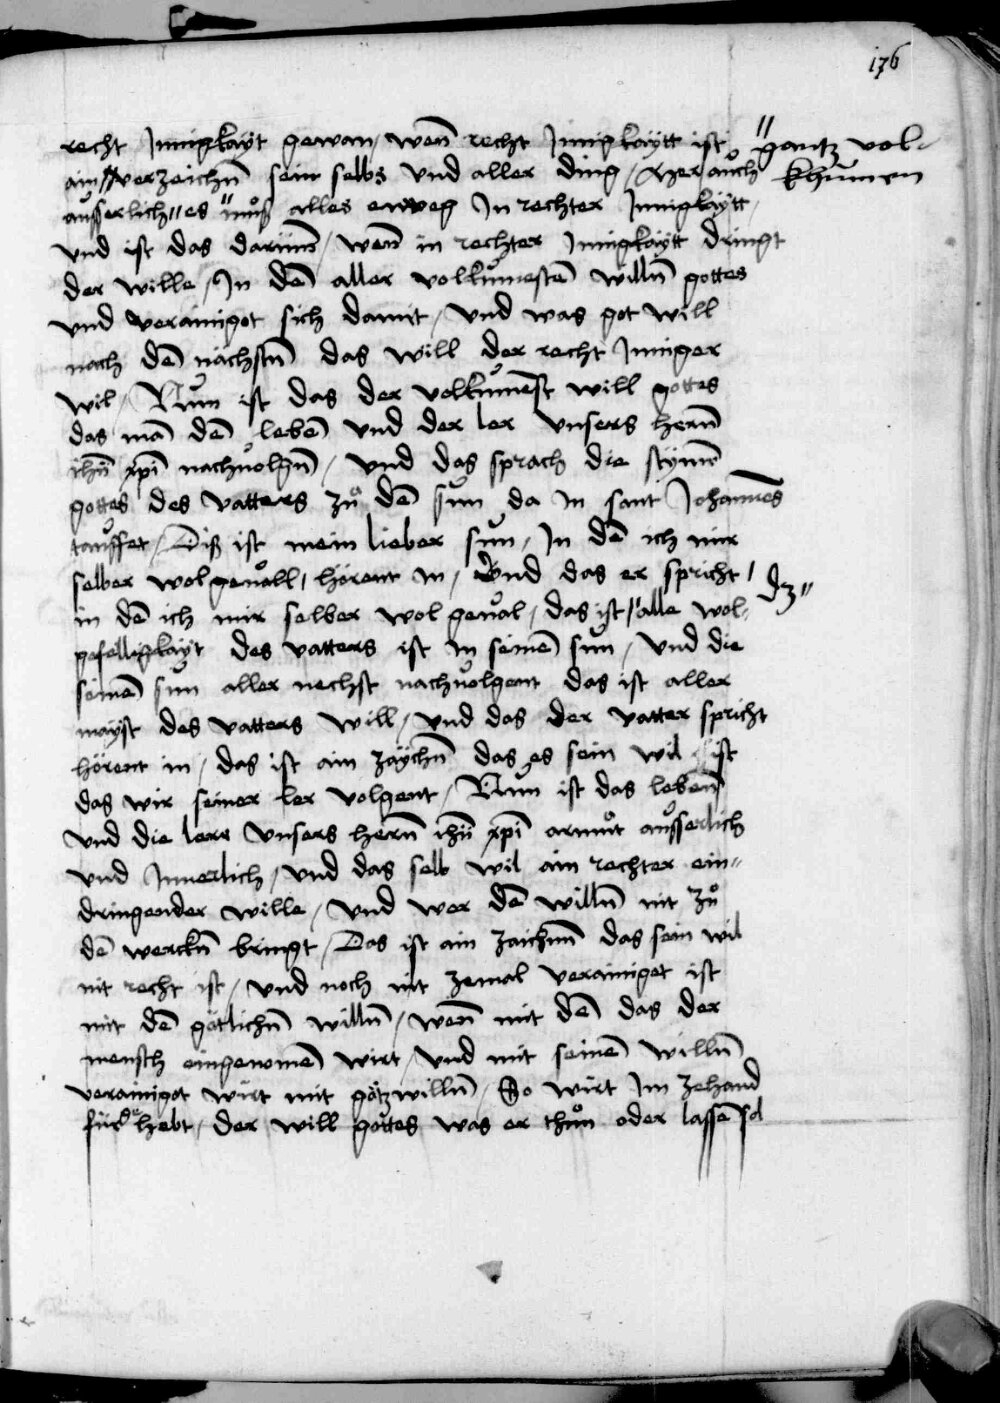 176
recht Innigkayt gewan / wen̄ recht Innigkaytt ist
ain " verzeichn̄ sein selbs vnd aller ding / Wer auch
ausserlich " es muͦß alles enweg In rechter Innigkaytt /
vnd ist das darumb / wen̄ in rechter Innigkaytt dringt
der wille / In dē aller volkumestē willn̄ gottes
vnd verainiget sich damit / vnd was got will
nach dē nächstn̄ das will der recht Inniger
wil / Nun ist das der volkumēst will gottes
das mā dē lebē vnd der ler vnsers hern̄
ihū xp̄i nachuolgn̄ / vnd das sprach die stymē
gottes des vatters zuͦ dē sun da In sant Johannes
tauffet / Diß ist mein lieber sun / In dē ich mir
selber wolgeuall / hörent In / Vnd das er spricht /
in dē ich mir selber wol geual / das ist " alle wol-
gefelligkayt des vatters ist In seinē sun / vnd die
seinē sun aller nechst nachuolgent das ist aller
mayst des vatters will / vnd das der vatter spricht
hörent in / das ist ain zaychn̄ das es sein wil ist
das wir seiner ler volgent / Nun ist das lebenn
vnd die lere vnsers hern̄ ihū xp̄i armuͦt ausserlich
vnd Innerlich / vnd das selb wil ain rechter ein"
dringender wille / vnd wer dē willn̄ nit zuͦ
dē werckn̄ bringt / Das ist ain zaichnn̄ das sein wil
nit recht ist / vnd noch nit zemal verainiget ist
mit dē götlichn̄ willn̄ / wen̄ mit dē das der
mensch eingenomē wirt / vnd mit seinē willn̄
verainiget wirt mit gotz willn̄ / So wirt Im zehand
für de hebt / der will gottes was er thuͦn oder lassē sol
" gantz vol-
khumen
dz "